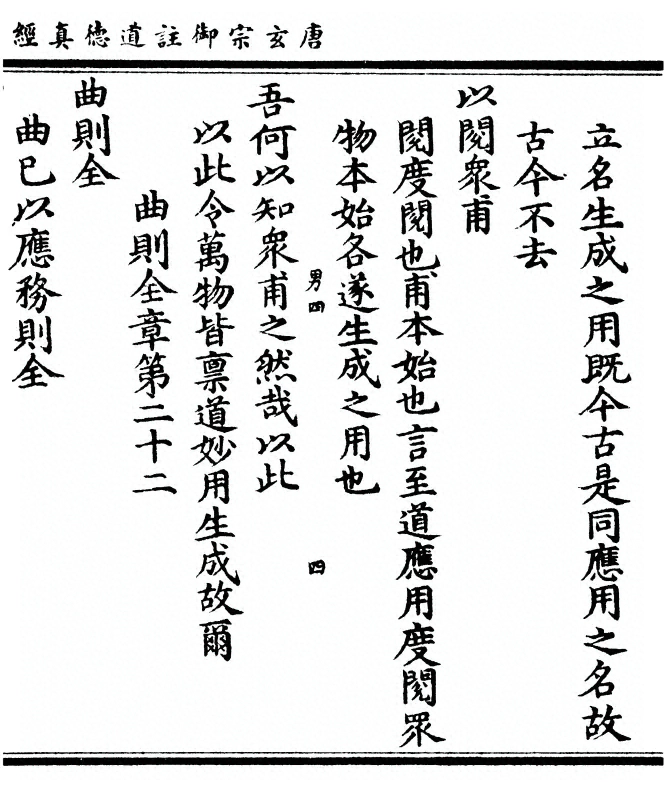 唐玄宗御註道德真經
立名生成之用既今古是同應用之名故
古今不去
以閱衆甫
閱度閱也甫本始也言至道應用度閱衆
物本始各遂生成之用也
男四
四
吾何以知衆甫之然哉以此
以此令萬物皆禀道妙用生成故爾
曲則全章第二十二
曲則全
曲已以應務則全